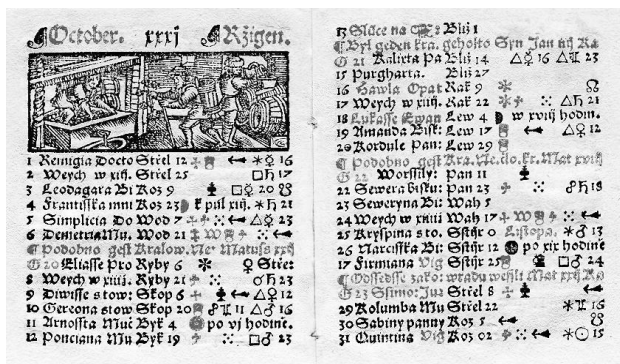 October. xxxj Ržigen.
1 Remigia Docto Střel 12 ✶☿ 16
2 Weych w xiſ. Střel 25 □♄ 17
3 Leodagara Bi Koz 9 □☿ 20 ☋
4 Frantiſſka mni Koz 23 k půl xiſ. ✶♄ 21
5 Simplicia Do Wod 7 △☿ 23
6 Demetria Mu. Wod 21
¶ Podobno geſt Kralow. Ne° Matuſs xxij
G 20 Eliaſſe Pro Ryby 6 ✶ ♀ Střel
8 Weych w xiiij. Ryby 21 ♂♄ 23
9 Diwiſſe s tow: Skop 6 △♀ 12
10 Gereona s tow Skop 20 16
11 Arnoſſta Muč Byk 4 po vj hodinė.
12 Ponciana Mu Byk 19 □♂ 23
13 Bliž 1
¶ Byl geden kra. gehožto Syn Jan iiij Ka
G 21 Kalixta Pa Bliž 14 △☿ 16 23
15 Purgharta. Bliž 27
16 Hawla Opat Rak 9 ✶ ☊
17 Weych w xiiij. Rak 22 △♄ 21
18 Lukaſſe Ewan Lew 4 w xviij hodin.
19 Amanda Biſk: Lew 17 △♀ 12
20 Kordule Pan: Lew 29
¶ Podobno geſt Kra. Ne. čło. kr. Mat xviij
G 22 Worſſily: Pan 11
22 Sewera biſku: Pan 23 ☍♄ 18
23 Seweryna Bi: Wah 5
24 Weych w xiiii Wah 17
25 Kryſpina s to. Sſtijr 0 Liſtopa. ✶♂ 13
26 Narciſſka Bi: Sſtijr 12 po xiv hodinė
27 Firmiana Vig Sſtijr 25 □♂ 24
¶ Odſſedſſe zako: w radu weſſli Mat xxij Ka
G 23 Sſimo: Jud Střel 8
29 Kolumba Mu Střel 22 16
30 Sabiny panny Koz 5 ☋
31 Quintina Vig Koz 02 ✶☉ 15